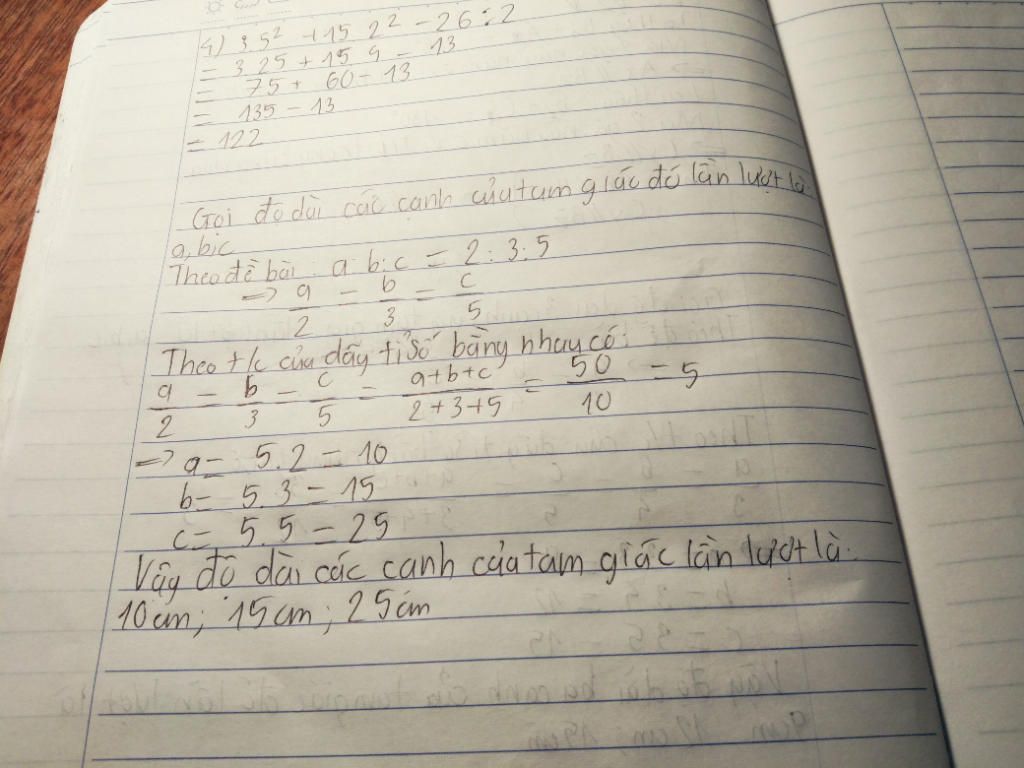 4) 3 5² + 15 2² - 26 : 2
= 3 25 + 15 4 - 13
= 75 + 60 - 13
= 135 - 13
= 122
Gọi độ dài các cạnh của tam giác đó lần lượt là
a, b, c
Theo đề bài: a : b : c = 2 : 3 : 5
=> a/2 = b/3 = c/5
Theo t/c của dãy tỉ số bằng nhau có:
a/2 = b/3 = c/5 = (a+b+c)/(2+3+5) = 50/10 = 5
=> a = 5.2 = 10
b = 5.3 = 15
c = 5.5 = 25
Vậy độ dài các cạnh của tam giác lần lượt là:
10cm; 15cm; 25cm